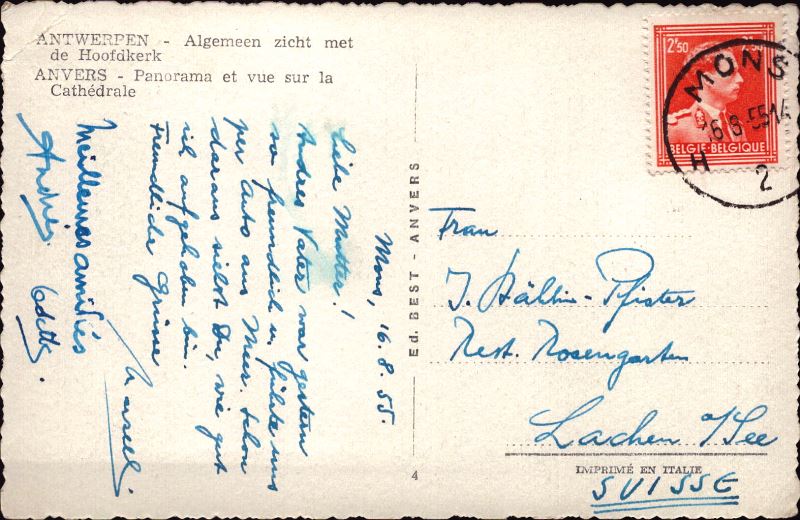 ANTWERPEN - Algemeen zicht met
de Hoofdkerk
ANVERS - Panorama et vue sur la
Cathédrale
Mons, 16.8.55.
Liebe Mutter!
Andrés Vater war gestern
so freundlich u. führte uns
per Auto ans Meer. Schon
daraus siehst Du, wie gut
ich aufgehoben bin.
Freundliche Grüsse
Marcel.
Meilleures amitiés
Andrée Odette.
Ed. BEST - ANVERS
4
2F50 2F50
BELGIE-BELGIQUE
MONS
16-8-55 14
H 2
Frau
J. Hählin-Pfister
Rest. Rosengarten
Lachen a/See
IMPRIMÉ EN ITALIE
SUISSE